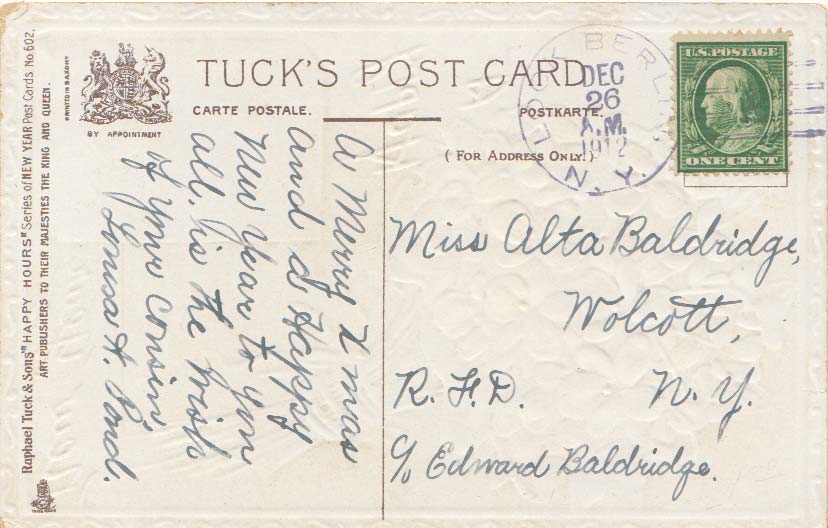 Raphael Tuck & Sons' "HAPPY HOURS" Series of NEW YEAR Post Cards No 602.
ART PUBLISHERS TO THEIR MAJESTIES THE KING AND QUEEN.
PRINTED IN SAXONY
BY APPOINTMENT
TUCK'S POST CARD
CARTE POSTALE.
POSTKARTE.
(FOR ADDRESS ONLY.)
BERLIN
DEC
26
A.M.
1912
N.Y.
U.S. POSTAGE
ONE CENT
A Merry Xmas
and a Happy
New Year to you
all, is the wish
of your cousin,
Louisa A. Pond.
Miss Alta Baldridge,
Wolcott,
R. F. D. N. Y.
c/o Edward Baldridge.